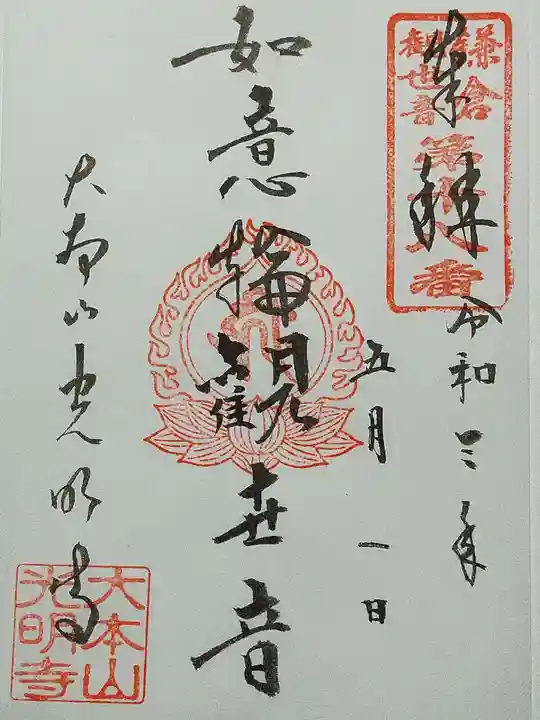 奉拝
鎌倉
観世音
第
番
令和三年
五月一日
如意輪観世音
大本山光明寺
大本山
光明寺